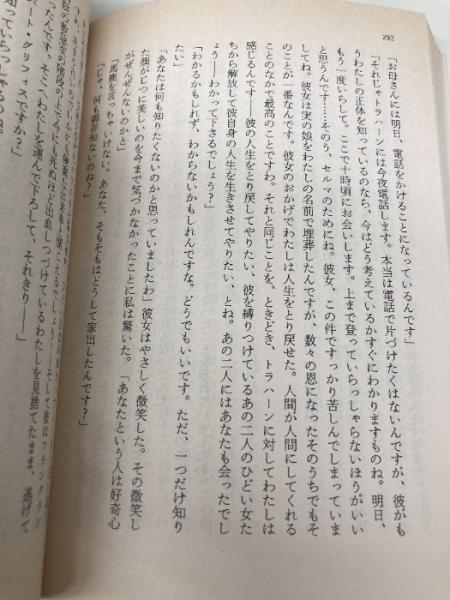 292
「お母さんには明日、電話をかけることになっているんです」
「それじゃトラハーンには今夜電話します。本当は電話で片づけたくはないんですが、彼がも
うわたしの正体を知っているのなら、今はどう考えているかすぐにわかりますものね。明日、
もう一度いらして。ここで十時頃にお会いします。上まで登っていらっしゃらないほうがいい
と思うんです……そのう、セルマのためにね。彼女、この件ですっかり苦しんでしまっていま
してね。彼女は実の娘をわたしの名前で埋葬したんですが、数々の恩になったそのうちでもそ
のことが一番なんです。彼女のおかげでわたしは人生をとり戻せた。人間が人間にしてくれる
ことのなかで最高のことですわ。それと同じことを、ときどき、トラハーンに対してわたしは
感じるんです――彼の人生をとり戻してやりたい、彼を縛りつけているあの二人のひどい女た
ちから解放して彼自身の人生を生きさせてやりたい、とね。あの二人にはあなたも会ったでし
ょう――わかって下さるでしょう？」
「わかるかもしれず、わからないかもしれんですな。どうでもいいです。ただ、一つだけ知り
たい」
「あなたは何も知りたくないのかと思っていましたわ」彼女はやさしく微笑した。その微笑し
た顔がじつに美しいのを今まで気づかなかったことに私は驚いた。「あなたという人は好奇心
がぜんぜんないのかと」
「馬鹿を言っちゃいけない。あなた、そもそもはどうして家出したんです？」
「じゃ、何も御存知ないのね？」
死ぬほど出血しつづけているわたしを見捨てたまま、逃げて
ったんです。そして、わたしを運んで下ろして、それきり――」
クリフィスですか？」
知っていらっしゃ